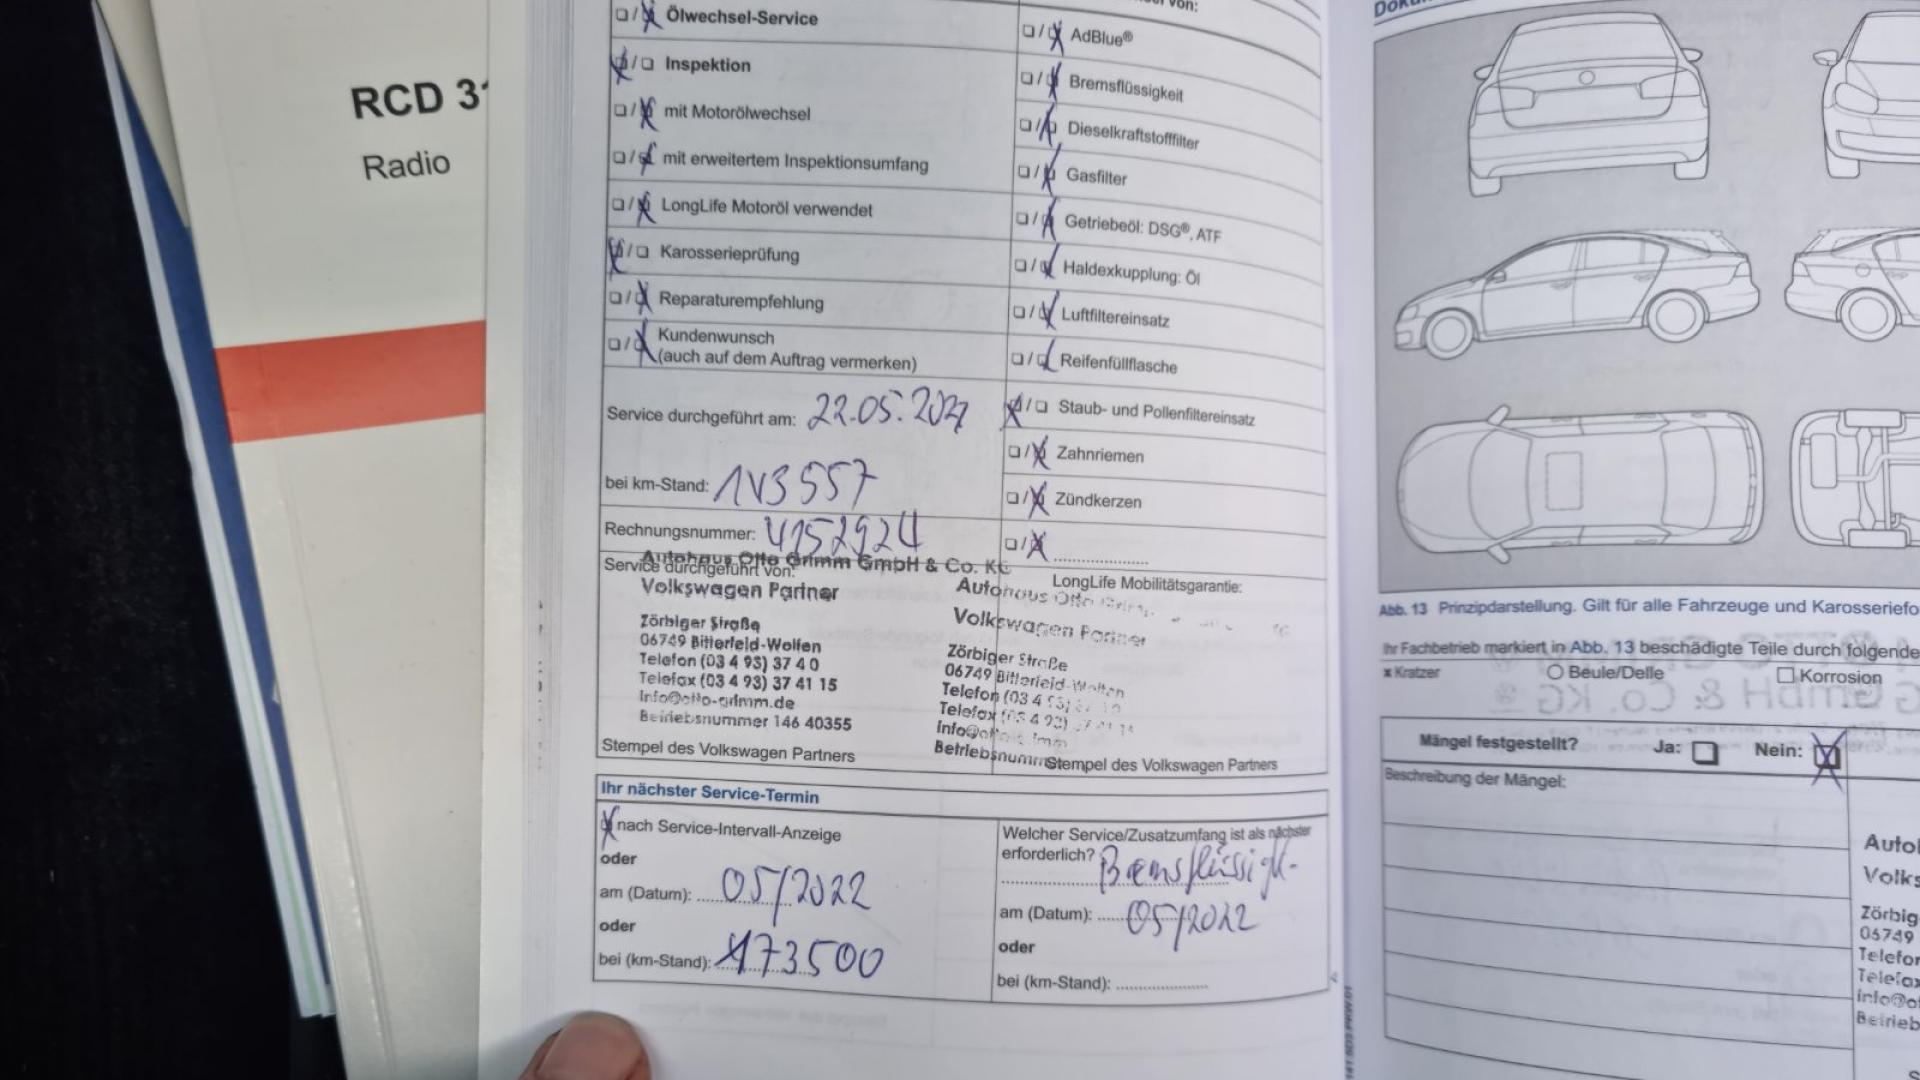 RCD 31
Radio
Ölwechsel-Service
Inspektion
mit Motorölwechsel
mit erweitertem Inspektionsumfang
LongLife Motoröl verwendet
Karosserieprüfung
Reparaturempfehlung
Kundenwunsch
(auch auf dem Auftrag vermerken)
Service durchgeführt am: 22.05.2021
bei km-Stand:
Rechnungsnummer: 4152924
Autohaus Otto Grimm GmbH & Co. KG
Service durchgeführt von:
Volkswagen Partner
Zörbiger Straße
06749 Bitterfeld-Wolfen
Telefon (03 4 93) 37 4 0
Telefax (03 4 93) 37 41 15
Info@otto-grimm.de
Betriebsnummer 146 40355
Stempel des Volkswagen Partners
von:
AdBlue®
Bremsflüssigkeit
Dieselkraftstofffilter
Gasfilter
Getriebeöl: DSG®, ATF
Haldexkupplung: Öl
Luftfiltereinsatz
Reifenfüllflasche
Staub- und Pollenfiltereinsatz
Zahnriemen
Zündkerzen
LongLife Mobilitätsgarantie:
Autohaus Otto
Volkswagen Partner
Zörbiger Straße
06749 Bitterfeld-Wolfen
Telefon (03 4
Telefax
Betriebsnumm
Stempel des Volkswagen Partners
Ihr nächster Service-Termin
nach Service-Intervall-Anzeige
oder
am (Datum): 05/2022
oder
bei (km-Stand): 173500
Welcher Service/Zusatzumfang ist als nächster
erforderlich? Bremsflüssigk-
am (Datum): 05/2022
oder
bei (km-Stand):
Abb. 13 Prinzipdarstellung. Gilt für alle Fahrzeuge und Karosseriefo
Ihr Fachbetrieb markiert in Abb. 13 beschädigte Teile durch folgende
x Kratzer
Beule/Delle
Korrosion
Mängel festgestellt? Ja: Nein:
Beschreibung der Mängel:
Autoh
Volks
Zörbig
06749
Telefon
Telefax
Info@ot
Betrieb